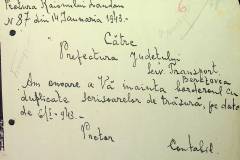 Pretura Raionului Landau
N 87 din 14 Ianuarie 1943.
Către
Prefectura Județului
Serv. Transport.
Berezovca
Am onoare a Vă înainta borderoul cu
duplicate scrisoarelor de trăsură, pe data
de 6/I-943.
Pretor
Contabil